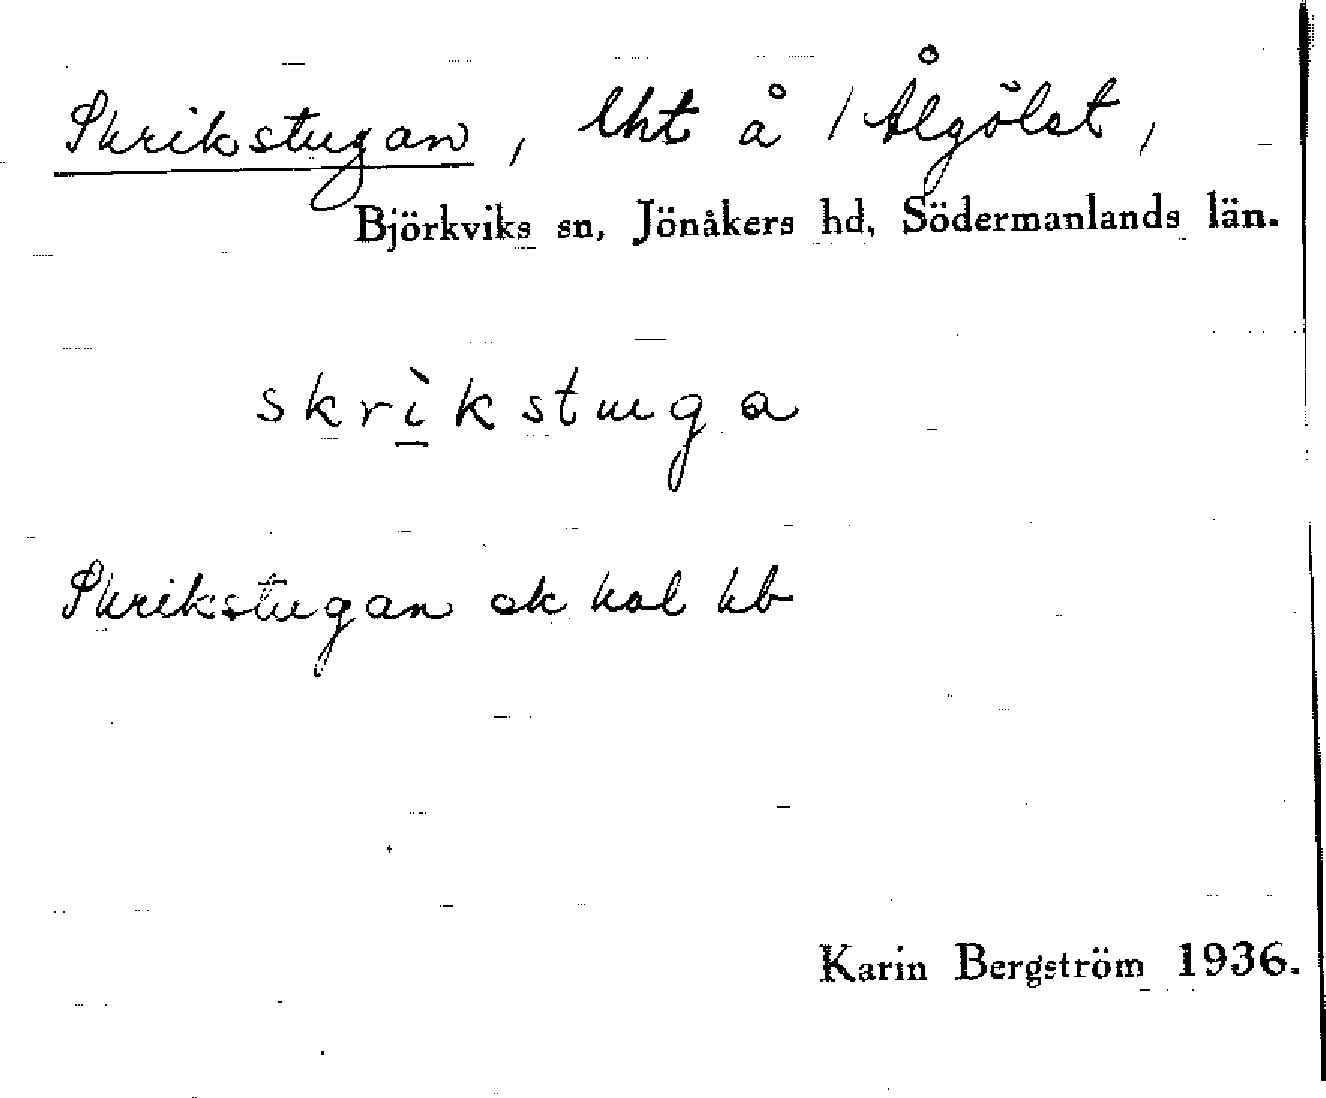 Skrikstugan, lht å /Ålgölet,
Björkviks sn, Jönåkers hd, Södermanlands län.
skrìkstuga
Skrikstugan ek kal kb
Karin Bergström 1936.